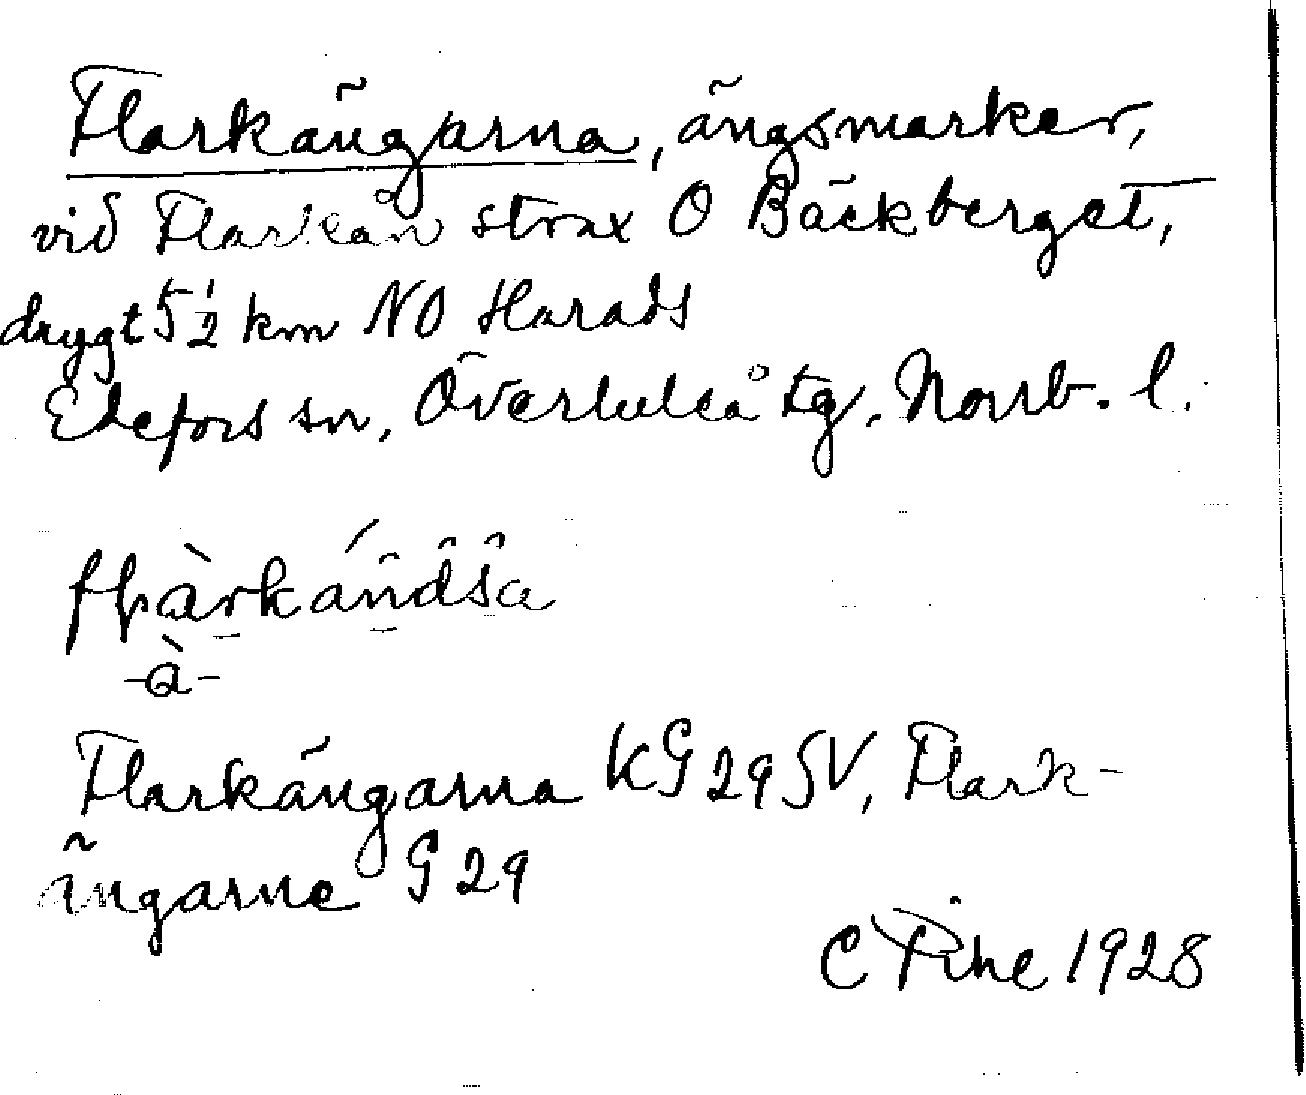 Flarkängarna, ängsmarker,
vid Flarkån strax O Bäckberget,
drygt 5 1/2 km NO Harads
Edefors sn, Överluleå tg. Norrb. l.
-à-
Flarkängarna KG 29 SV, Flark-
ängarne G 29
C Pihe 1928